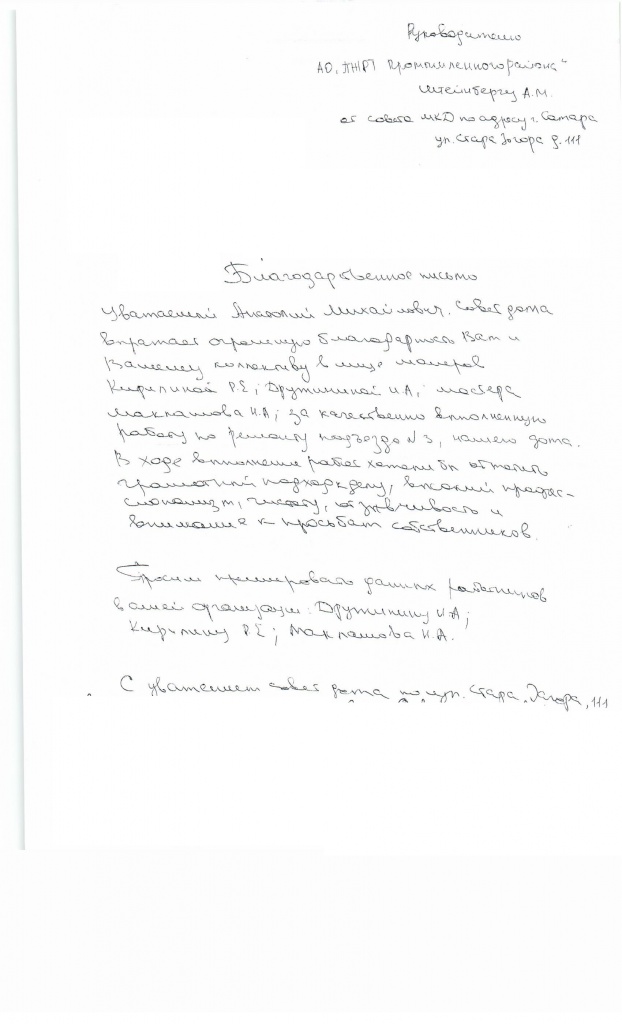 Руководителю
АО „ПЖРТ Промышленного района“
Штейнбергу А.М.
от совета МКД по адресу г. Самара
ул. Стара Загора д. 111
Благодарственное письмо
Уважаемый Анатолий Михайлович. Совет дома
выражает огромную благодарность Вам и
Вашему коллективу в лице маляров
Кирилиной Р.Е; Дружининой И.А; мастера
Маклашова И.А; за качественно выполненную
работу по ремонту подъезда №3, нашего дома.
В ходе выполнения работ хотели бы отметить
грамотный подход к делу, высокий профес-
сионализм, чистоту, отзывчивость и
внимание к просьбам собственников.
Просим премировать данных работников
вашей организации: Дружинину И.А;
Кирилину Р.Е; Маклашова И.А.
С уважением совет дома по ул. Стара Загора, 111